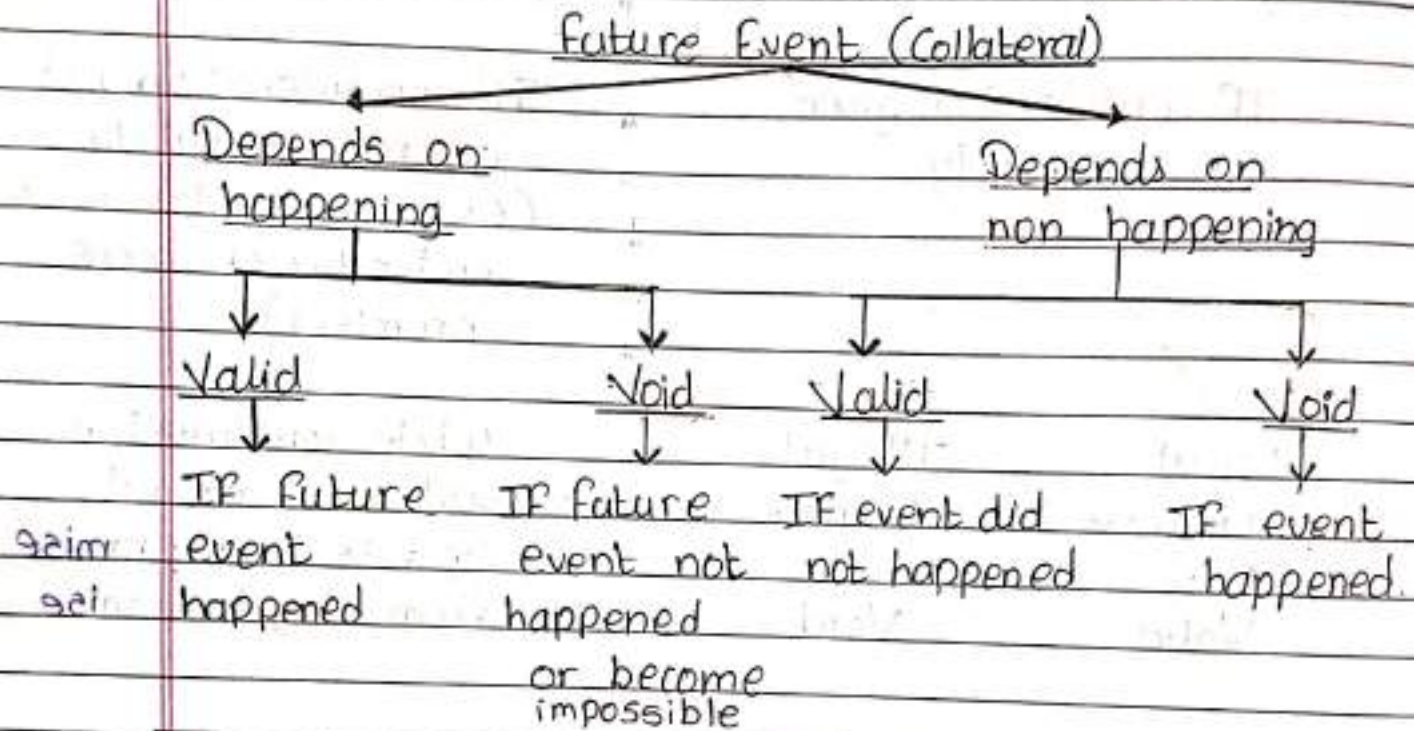 Future Event (Collateral)
Depends on
happening
Depends on
non happening
Valid
Void
Valid
Void
IF future
event
happened
IF future
event not
happened
or become
impossible
IF event did
not happened
IF event
happened.